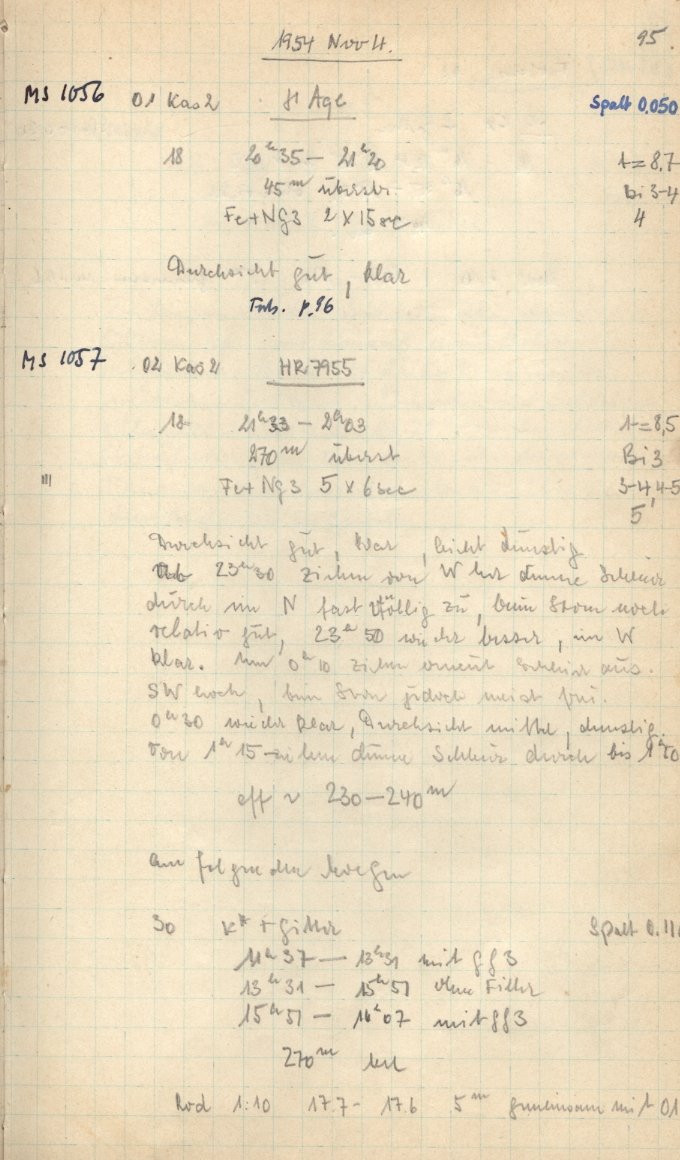 1954 Nov 4. 95.
MS 1056 01 Kas2 Age Spalt 0,050
18 20h35 – 21h20 t=8.7
45m überstr. Bi 3-4
Fe+Ng3 2x15sec 4
Durchsicht gut, klar
p.96
MS 1057 02 Kas2 HR7955
18 21h33 – 2h03 t=8,5
270m überst Bi3
III Fe+Ng3 5x6sec 3-4,4-5
5
Durchsicht gut, klar, leicht dunstig
Ab 23h30 ziehen von W her dünne Schleier
durch im N fast völlig zu, beim Stern noch
relativ gut, 23h50 wieder besser, im W
klar. Um 0h10 ziehen erneut Schleier aus.
SW hoch, beim Stern jedoch meist frei.
0h30 wieder klar, Durchsicht mittel, dunstig.
Von 1h15 ziehen dünne Schleier durch bis
eff ~ 230–240m
am folgenden Morgen
30 K* + Gitter Spalt 0.11
11h37 – 13h31 mit gg3
13h31 – 15h51 ohne Filter
15h51 – 16h07 mit gg3
270m
Rod 1:10 17.7 – 17.6 5m gemeinsam mit 01